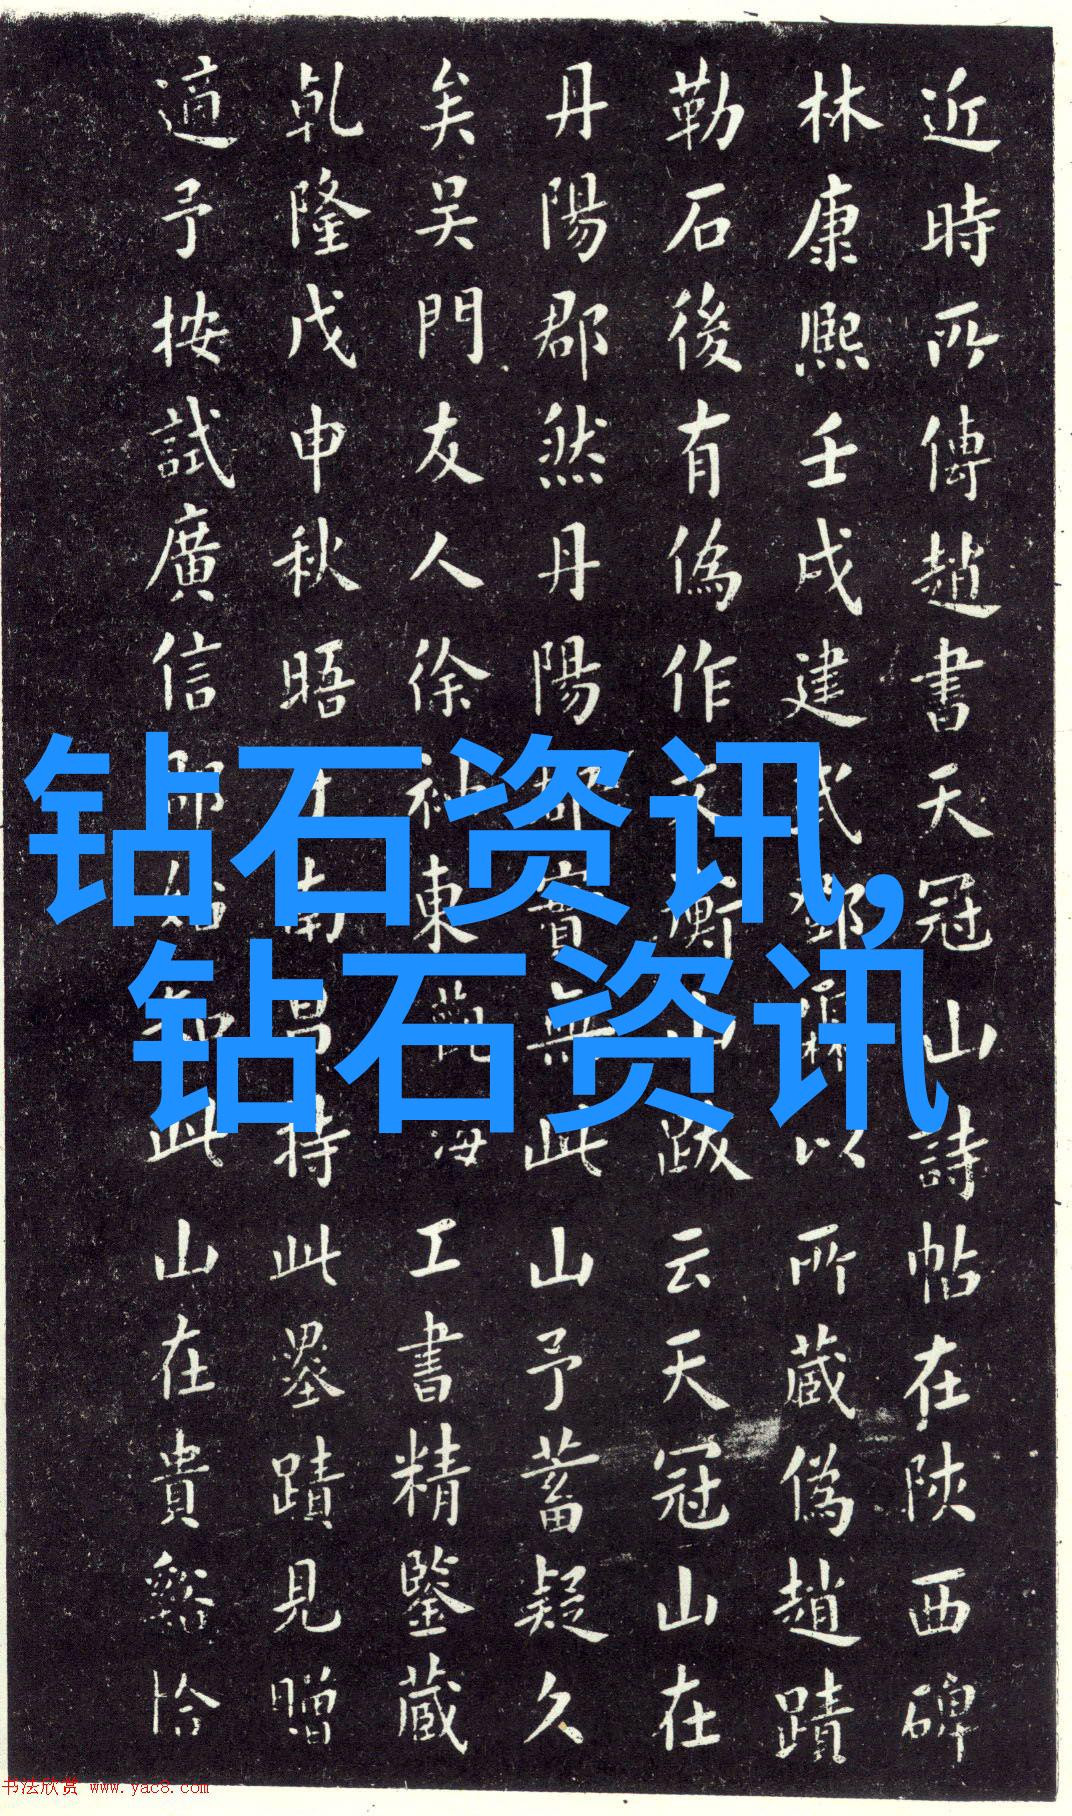 近時所傳趙書天冠山詩帖在陝西碑
林康熙壬戌建武鄧霖以所藏偽趙蹟
勒石後有偽作文衡山跋云天冠山在
丹陽郡然丹陽郡實無此山予蓄疑久
矣吴門友人徐神東海工書精鑒藏
乹隆戊申秋晤于南昌持此墨蹟見贈
適予按試廣信即知此山在貴谿恰
钻石资讯,
钻石资讯
书法欣赏 www.yac8.com